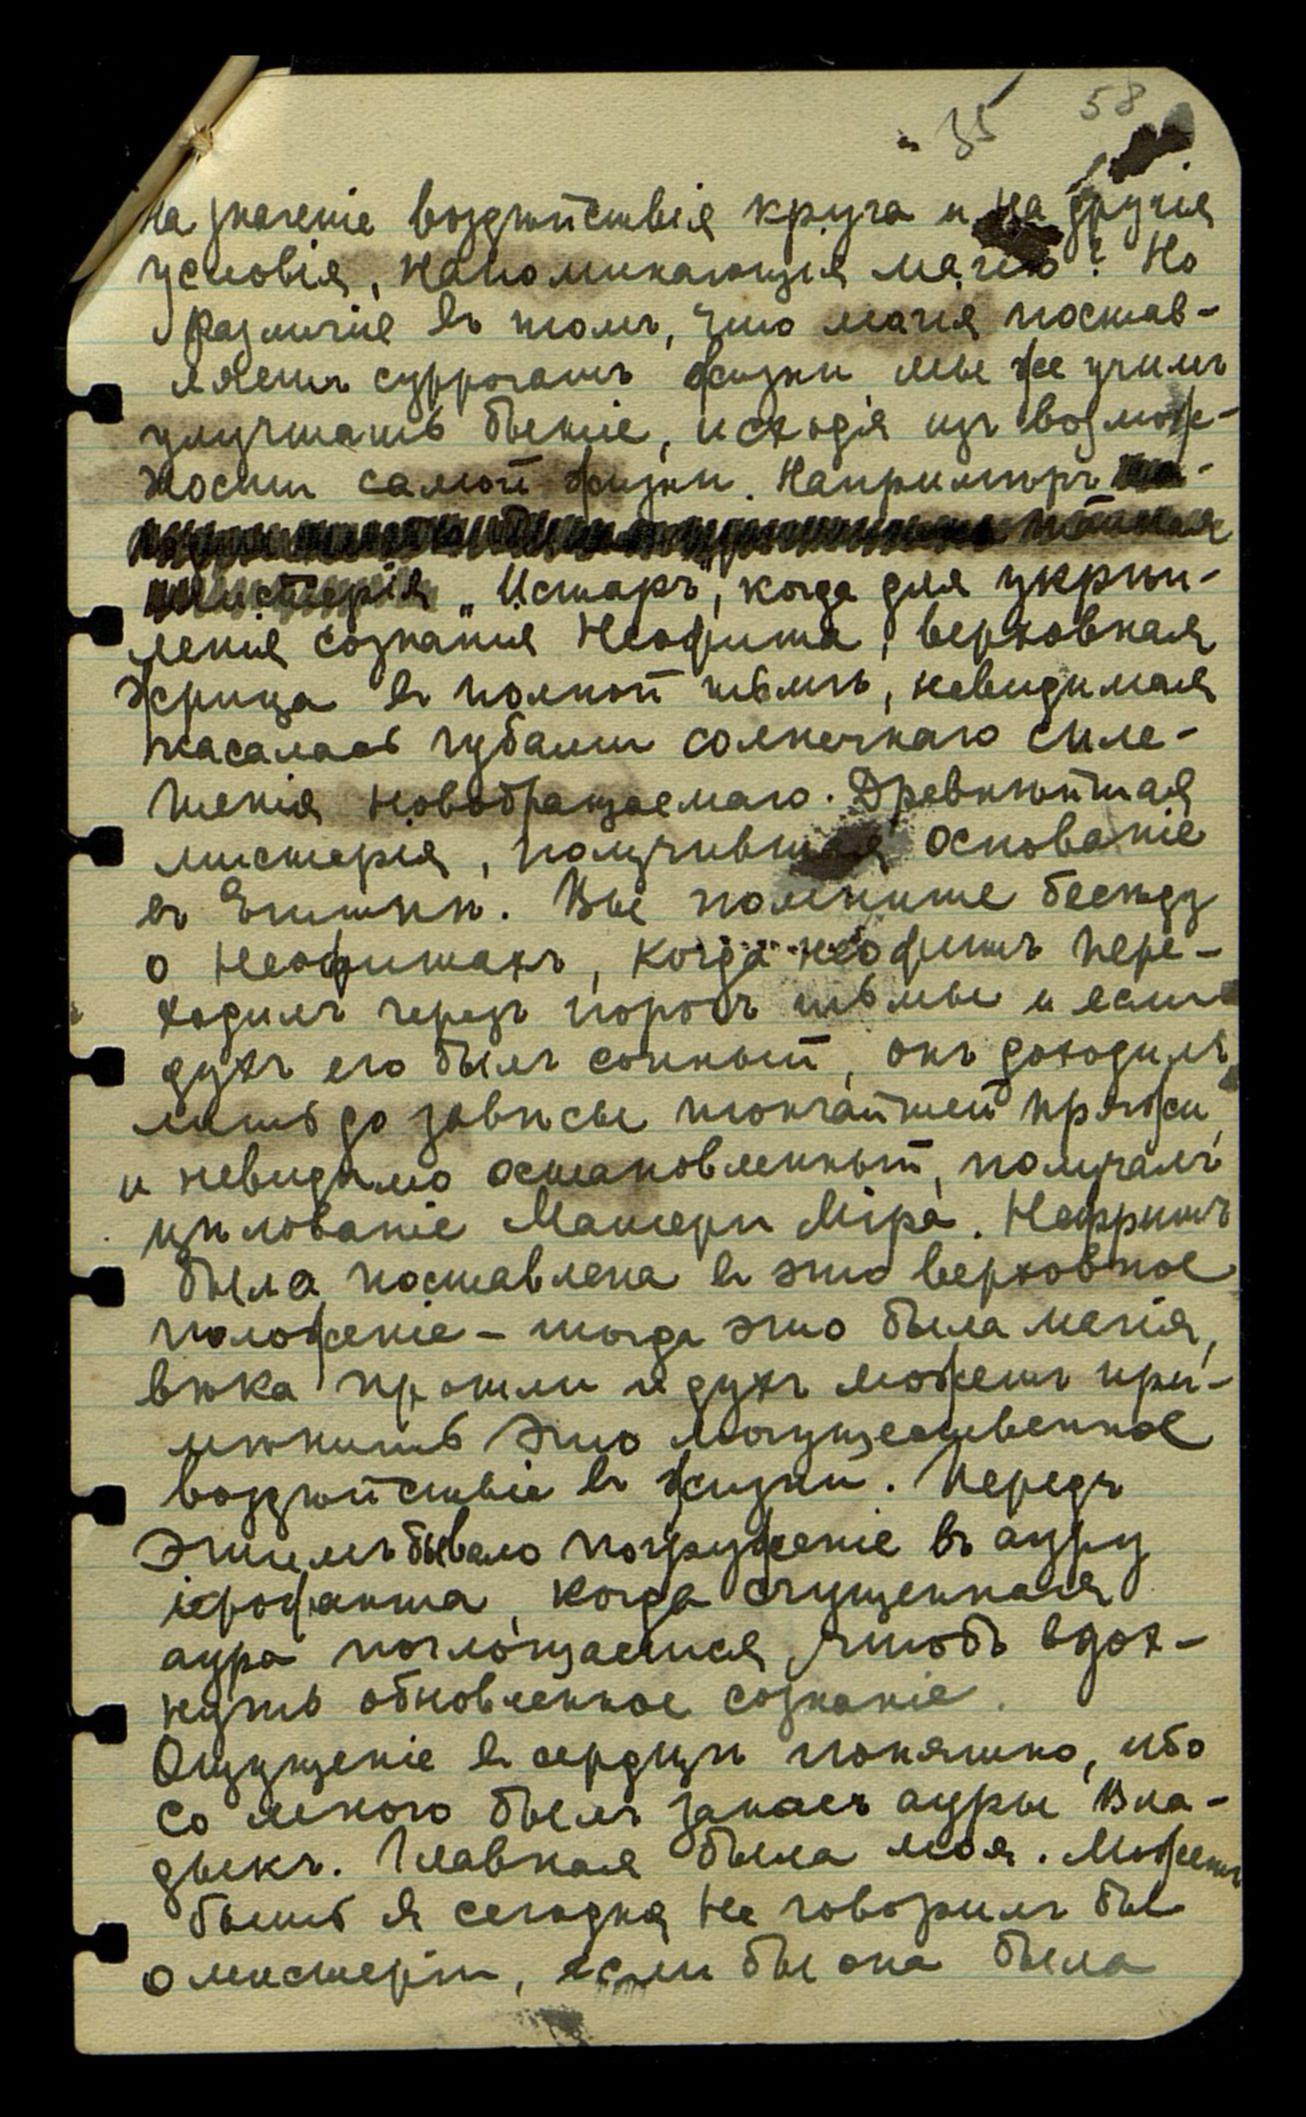 35 58
на значеніе воздѣйствія круга и на другія
условія, напоминающія магію? Но
различіе въ томъ, что магія постав-
ляетъ суррогатъ жизни мы же учимъ
улучшать бытіе, исходя изъ возмож-
ности самой жизни. Напримѣръ
мистерія „Истаръ", когда для укрѣп-
ленія сознанія Неофита, верховная
жрица въ полной тьмѣ, невидимая
касалась губами солнечнаго спле-
тенія новообращаемаго. Древнѣйшая
мистерія, получившая основаніе
въ Египтѣ. Вы помните бесѣду
о Неофитахъ, когда неофитъ пере-
ходилъ черезъ порогъ тьмы и если
духъ его былъ сонный, онъ доходилъ
лишь до завѣсы тончайшей пряжи
и невидимо остановленный, получалъ
цѣлованіе Матери Міра. Нефритъ
была поставлена въ это верховное
положеніе – тогда это была магія,
вѣка прошли и духъ можетъ при-
мѣнить это могущественное
воздѣйствіе въ жизни. Передъ
этимъ бывало погруженіе въ ауру
іерофанта, когда сгущенная
аура поглощается, чтобъ вдох-
нуть обновленное сознаніе.
Ощущеніе въ сердцѣ понятно, ибо
со мною былъ запасъ ауры Вла-
дыкъ. Главная была моя. Можетъ
быть я сегодня не говорилъ бы
о мистеріи, если бы она была